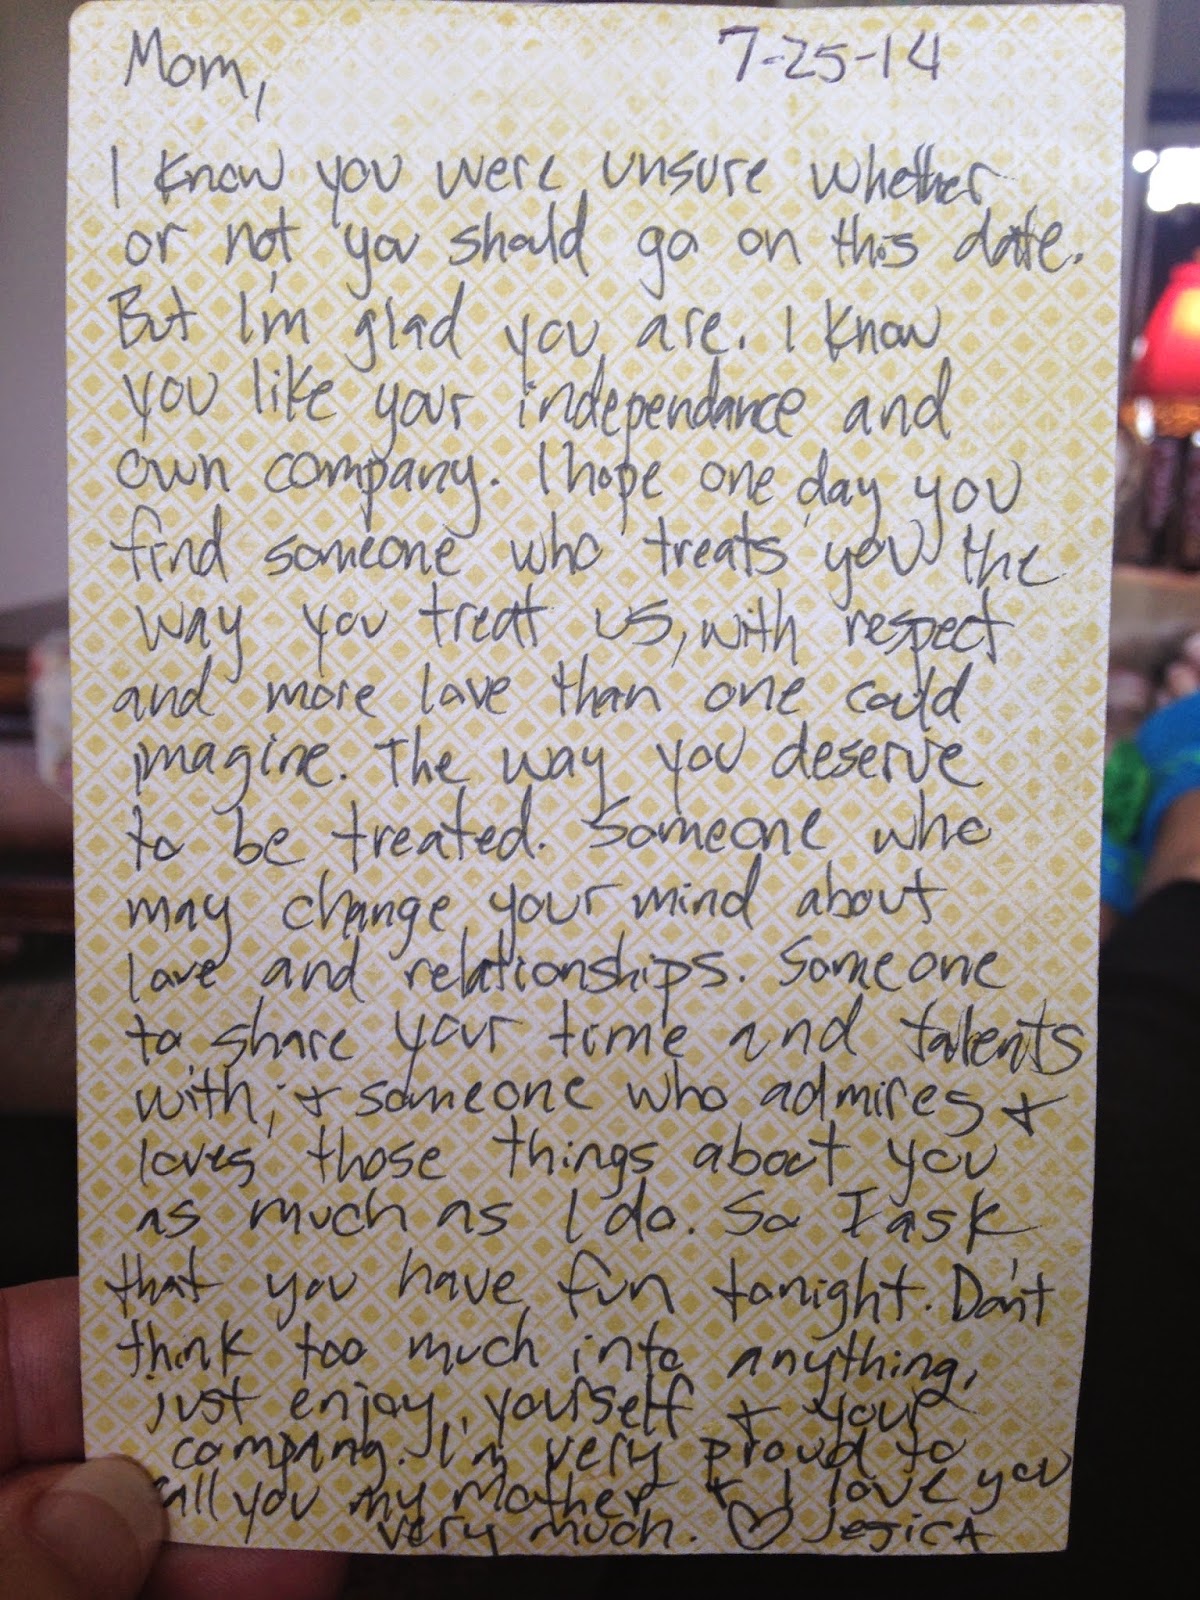 Mom, 7-25-14
I know you were unsure whether
or not you should go on this date.
But I'm glad you are. I know
you like your independance and
own company. I hope one day you
find someone who treats you the
way you treat us, with respect
and more love than one could
imagine. The way you deserve
to be treated. Someone who
may change your mind about
love and relationships. Someone
to share your time and talents
with, & someone who admires &
loves those things about you
as much as I do. So I ask
that you have fun tonight. Don't
think too much into anything,
just enjoy yourself & your
company. I'm very proud to
call you my mother & I love you
very much. ♡ Jesica